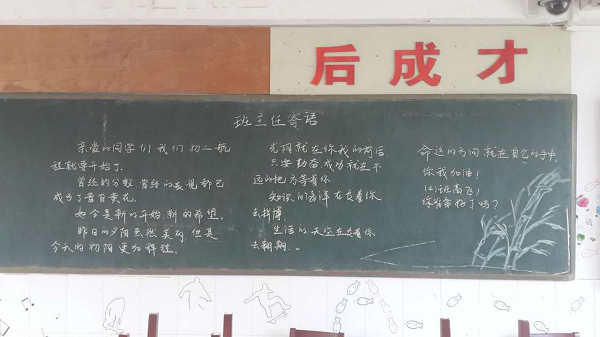 后成才
班主任寄语
亲爱的同学们我们初二航
程就要开始了.
曾经的分数曾经的表现都已
成为了昔日黄花.
如今是新的开始.新的希望.
昨日的夕阳虽然美丽,但是
今天的初阳更加辉煌.
光阳就在你我的前后
只要勤奋,成功就在不
远的地方等着你
知识的海洋在支着你
去拼搏
生活的天空在支着你
去翱翔..
命运的方向就在自己的手中.
你我加油!
(2)班高飞!
你准备好了吗?